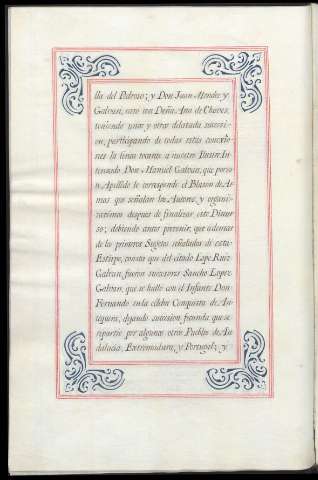 lla del Pedroso; y Don Juan Mendez y
Galvan, caso con Doña Ana de Chaves,
teniendo unos y otros dilatada succesi-
on, participando de todas estas conexio-
nes la linea recante a nuestro Pretendiente
Don Manuel Galvan, que por su
Apellido le corresponde el Blason de Ar-
mas que señalan los Autores, y organi-
zaremos despues de finalizar este Discur-
so; debiendo antes prevenir, que ademas
de los primeros Sugetos señalados de esta
Estirpe, consta que del citado Lope Ruiz
Galvan, fueron sucesores Sancho Lopez
Galvan, que se hallo con el Infante Don
Fernando en la célebre Conquista de An-
tequera, dejando succesion fecunda que se
repartio por algunos otros Pueblos de An-
dalucia, Extremadura, y Portugal; y